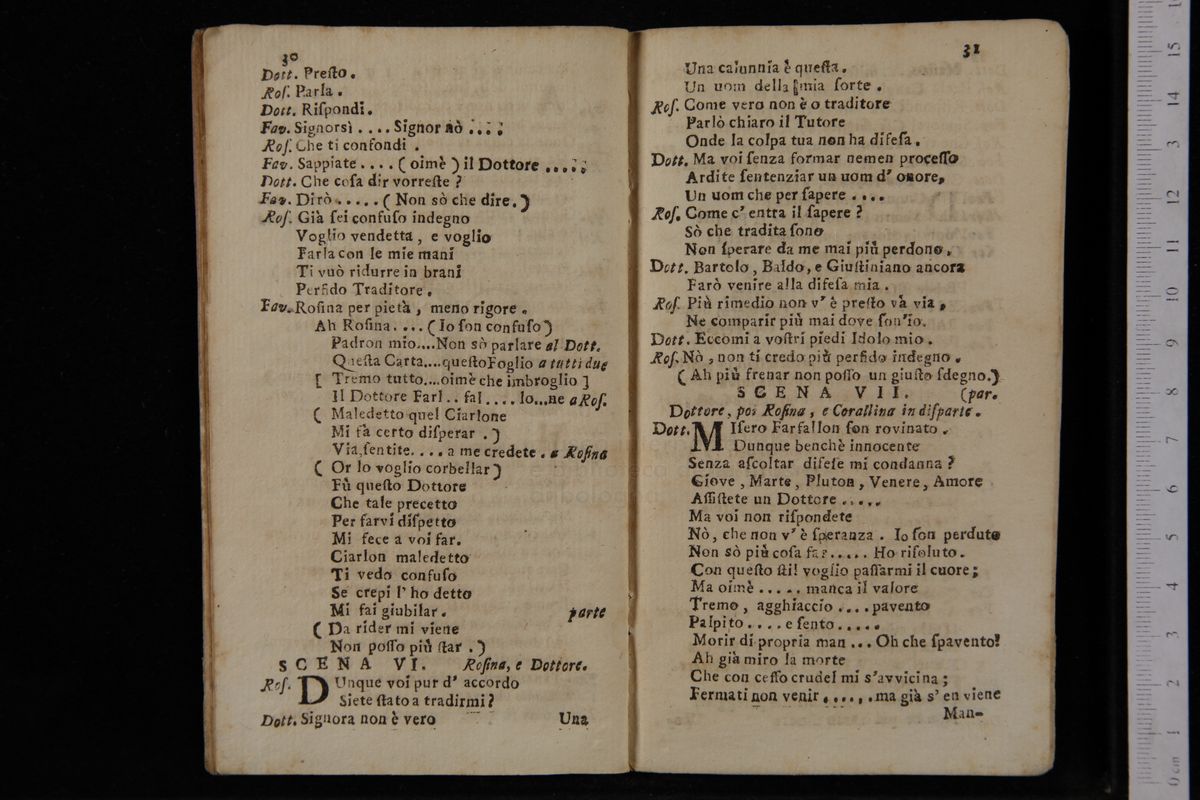 30
Dott. Preſto.
Roſ. Parla.
Dott. Riſpondi.
Fav. Signorsì .... Signor nò ....
Roſ. Che ti confondi.
Fav. Sappiate .... ( oimè ) il Dottore ......
Dott. Che coſa dir vorreſte ?
Fav. Dirò ..... ( Non sò che dire. )
Roſ. Già ſei confuſo indegno
Voglio vendetta, e voglio
Farla con le mie mani
Ti vuò ridurre in brani
Perfido Traditore.
Fav. Roſina per pietà, meno rigore.
Ah Roſina. ... ( Io ſon confuſo )
Padron mio....Non sò parlare al Dott.
Queſta Carta....queſtoFoglio a tutti due
[ Tremo tutto....oimè che imbroglio ]
Il Dottore Farl .. fal .... lo...ne a Roſ.
( Maledetto quel Ciarlone
Mi fà certo diſperar . )
Via,ſentite. ... a me credete. a Roſina
( Or lo voglio corbellar )
Fù queſto Dottore
Che tale precetto
Per farvi diſpetto
Mi fece a voi far.
Ciarlon maledetto
Ti vedo confuſo
Se crepi l' ho detto
Mi fai giubilar. parte
( Da rider mi viene
Non poſſo più ſtar . )
SCENA VI. Roſina, e Dottore.
Roſ. DUnque voi pur d' accordo
Siete ſtato a tradirmi ?
Dott. Signora non è vero
Una
31
Una calunnia è queſta.
Un uom della mia ſorte.
Roſ. Come vero non è o traditore
Parlò chiaro il Tutore
Onde la colpa tua non ha difeſa.
Dott. Ma voi ſenza formar nemen proceſſo
Ardite ſentenziar un uom d' onore,
Un uom che per ſapere ....
Roſ. Come c' entra il ſapere ?
Sò che tradita ſono
Non ſperare da me mai più perdono.
Dott. Bartolo, Baldo, e Giuſtiniano ancora
Farò venire alla difeſa mia.
Roſ. Più rimedio non v' è preſto và via,
Ne comparir più mai dove ſon'io.
Dott. Eccomi a voſtri piedi Idolo mio.
Roſ. Nò, non ti credo più perfido indegno.
( Ah più frenar non poſſo un giuſto ſdegno.)
SCENA VII. (par.
Dottore, poi Roſina, e Corallina in diſparte.
Dott. MIſero Farfallon ſon rovinato.
Dunque benchè innocente
Senza aſcoltar difeſe mi condanna ?
Giove, Marte, Pluton, Venere, Amore
Aſſiſtete un Dottore .....
Ma voi non riſpondete
Nò, che non v' è ſperanza. Io ſon perduto
Non sò più coſa far..... Ho riſoluto.
Con queſto ſtil voglio paſſarmi il cuore;
Ma oimè ..... manca il valore
Tremo, agghiaccio .... pavento
Palpito .... e ſento .....
Morir di propria man ... Oh che ſpavento!
Ah già miro la morte
Che con ceffo crudel mi s'avvicina;
Fermati non venir ......ma già s' en viene
Man-